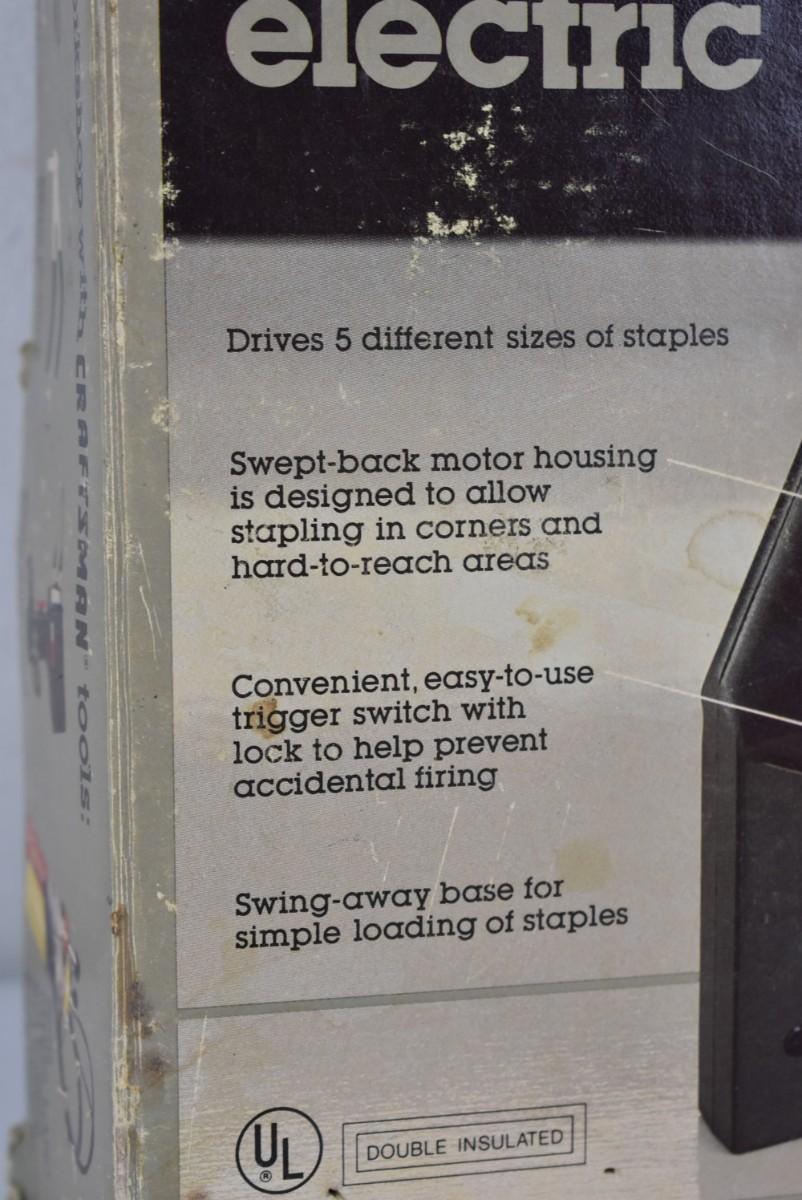 electric
Drives 5 different sizes of staples
Swept-back motor housing
is designed to allow
stapling in corners and
hard-to-reach areas
Convenient, easy-to-use
trigger switch with
lock to help prevent
accidental firing
Swing-away base for
simple loading of staples
UL
®
DOUBLE INSULATED
with CRAFTSMAN® tools: